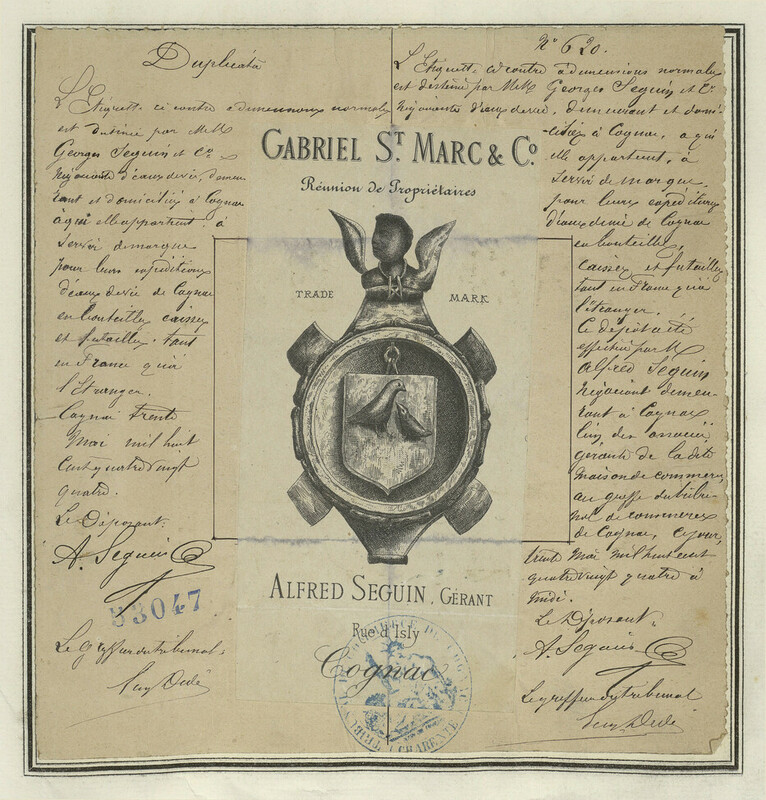 Duplicata
L'Etiquette ci contre a dimensions normales
est destinée par MM
Georges Seguin et Co
Négociants d'eaux de vie, demeu
rant et domiciliés à Cognac
à qui elle appartient à
servir de marque
pour leurs expéditions
d'eaux de vie de Cognac
en bouteilles caisses
et futailles, tant
en France qu'à
l'Etranger.
Cognac trente
Mai mil huit
cent quatre vingt
quatre.
Le Déposant.
A. Seguin
53047
Le Greffier du tribunal
No 620.
L'Etiquette ci contre à dimensions normales
est destinée par MM Georges Seguin et Co
Négociants d'eaux de vie, demeurant et domi-
-ciliés à Cognac, a qui
elle appartient, à
servir de marque
pour leurs expéditions
d'eaux de vie de Cognac
en bouteilles,
caisses et futailles
tant en France qu'à
l'étranger.
Ce dépôt a été
effectué par M
Alfred Seguin
Négociant demeu-
rant à Cognac
l'un des associés
gérants de la dite
Maison de commerce,
au greffe du tribu-
nal de commerce
de Cognac, ce jour,
trente Mai mil huit cent
quatre vingt quatre à
midi.
Le Déposant.
A. Seguin
Le greffier du tribunal
GABRIEL ST MARC & CO
Réunion de Propriétaires
TRADE MARK
ALFRED SEGUIN, GÉRANT
Rue d'Isly
Cognac
TRIBUNAL DE COMMERCE DE COGNAC
CHARENTE